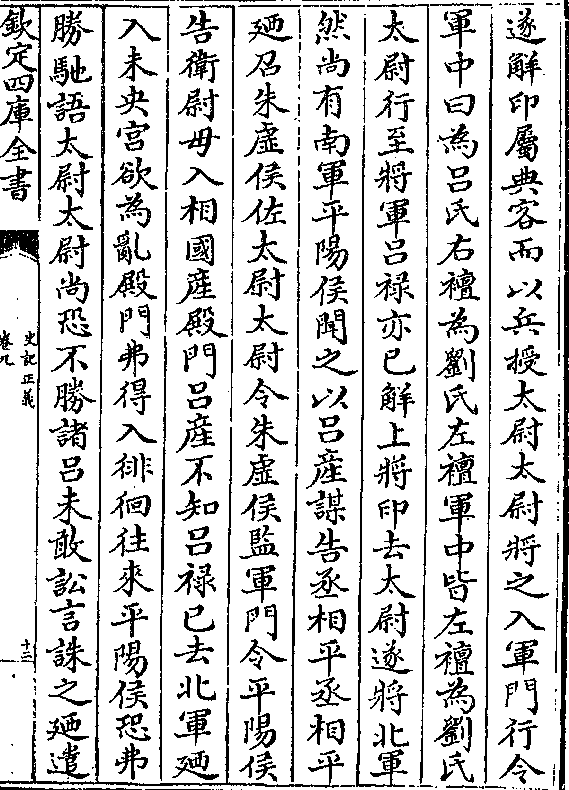 遂解印屬典客而以兵授太尉太尉將之入軍門行令
軍中曰為呂氏右襢為劉氏左襢軍中皆左襢為劉氏
太尉行至將軍呂禄亦已解上將印去太尉遂將北軍
然尚有南軍平陽侯聞之以呂産謀告丞相平丞相平
廼召朱虚侯佐太尉太尉令朱虚侯監軍門令平陽侯
告衛尉毋入相國産殿門呂産不知呂禄已去北軍廼
入未央宮欲為亂殿門弗得入徘徊往來平陽侯恐弗
勝馳語太尉太尉尚恐不勝諸呂未敢訟言誅之廼遣
欽定四庫全書
史記正義
卷九
十三